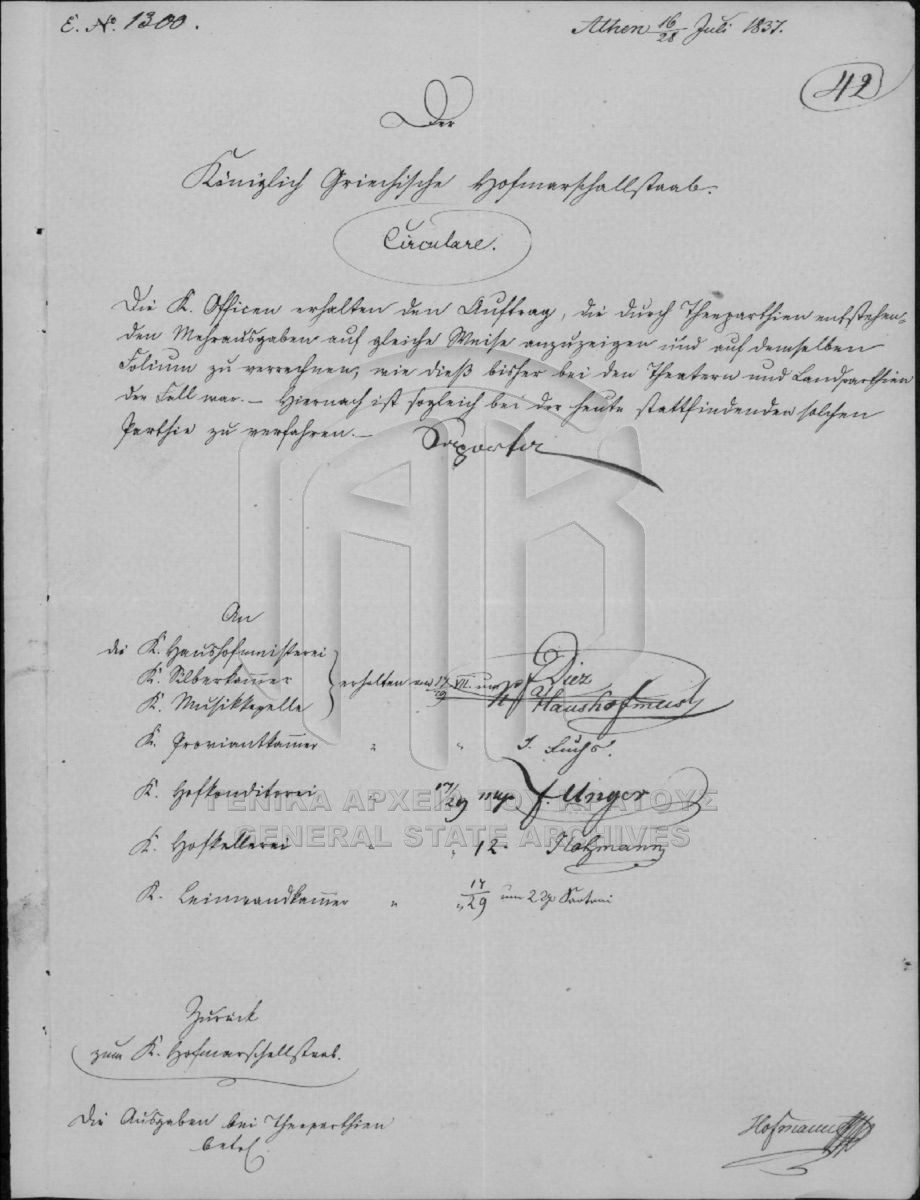 E. No. 1300.
Athen 16/28 Juli 1837.
42
Der
Königlich Griechische Hofmarschallstaab.
Circulare.
Die K. Officen erhalten den Auftrag, die durch Theeparthien entstehen-
den Mehrausgaben auf gleiche Weise anzuzeigen und auf demselben
Folium zu verrechnen, wie dieß bisher bei den Theatern und Landparthien
der Fall war. – Hiernach ist sogleich bei der heute stattfindenden solchen
Parthie zu verfahren. –
An
die K. Haushofmeisterei
K. Silberkamer
K. Musikkapelle
erhalten am 17/29 VII. um
Diez
Haushofmeist
K. Proviantkam̅er " " J. Fuchs.
K. Hofkonditorei " 17/29 F. Unger
K. Hofkellerei " " 12.
K. Leinwandkam̅er " 17/29 um 2
ΓΕΝΙΚΑ ΑΡΧΕΙΑ ΤΟΥ ΚΡΑΤΟΥΣ
GENERAL STATE ARCHIVES
Zurück
zum K. Hofmarschallstaab.
Die Ausgaben bei Theeparthien
betr.
Hofmann